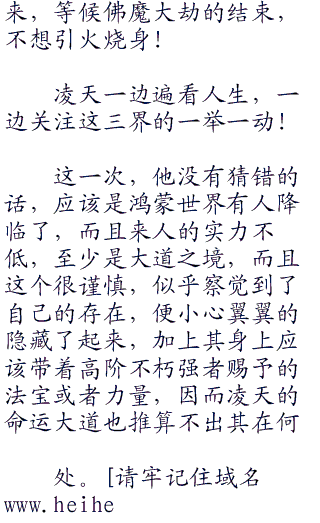 来，等候佛魔大劫的结束，
不想引火烧身！
凌天一边遍看人生，一
边关注这三界的一举一动！
这一次，他没有猜错的
话，应该是鸿蒙世界有人降
临了，而且来人的实力不
低，至少是大道之境，而且
这个很谨慎，似乎察觉到了
自己的存在，便小心翼翼的
隐藏了起来，加上其身上应
该带着高阶不朽强者赐予的
法宝或者力量，因而凌天的
命运大道也推算不出其在何
处。[请牢记住域名
www.heihe